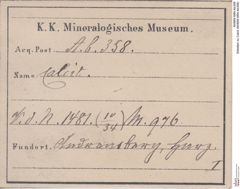 K. K. Mineralogisches Museum.
Acq. Post A. b. 358.
Name Calcit.
1881. (10/34) M. 976
Fundort. Andreasberg, Harz.
I